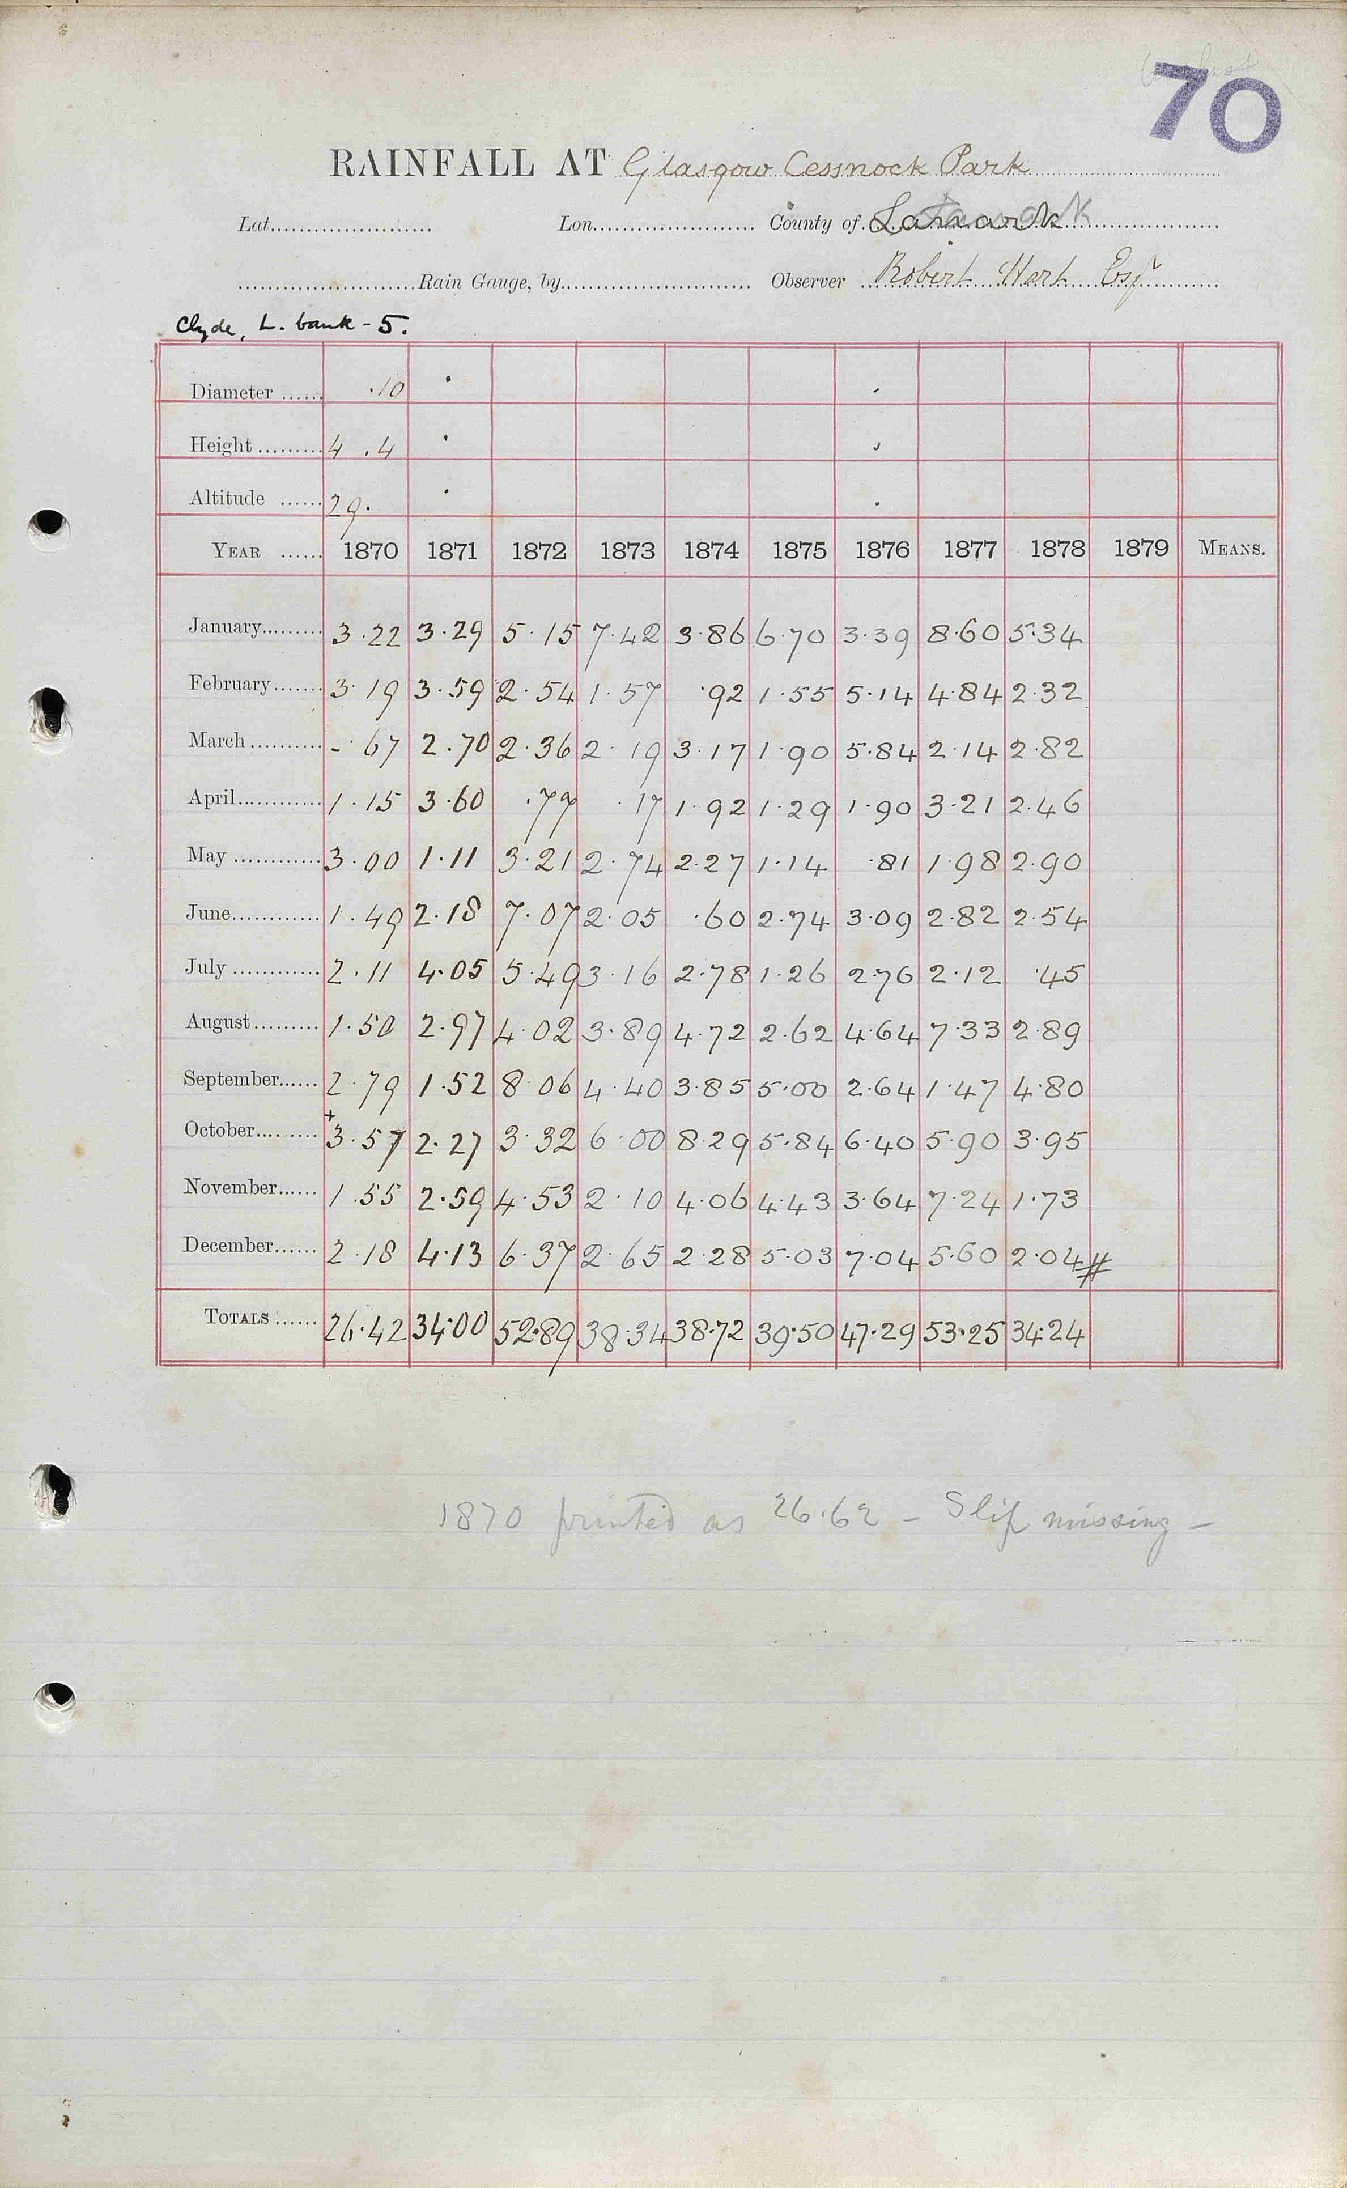 70
RAINFALL AT Glasgow Cessnock Park
Lat. Lon. County of Lanark
Rain Gauge, by Observer Robert Hart Esqr
Clyde, L. bank - 5.
Diameter ...... .10
Height ......... 4 .4
Altitude ...... 29.
YEAR ...... 1870 1871 1872 1873 1874 1875 1876 1877 1878 1879 MEANS.
January......... 3.22 3.29 5.15 7.42 3.86 6.70 3.39 8.60 5.34
February....... 3.19 3.59 2.54 1.57 .92 1.55 5.14 4.84 2.32
March ........... -.67 2.70 2.36 2.19 3.17 1.90 5.84 2.14 2.82
April............. 1.15 3.60 .77 .17 1.92 1.29 1.90 3.21 2.46
May ............. 3.00 1.11 3.21 2.74 2.27 1.14 .81 1.98 2.90
June............. 1.49 2.18 7.07 2.05 .60 2.74 3.09 2.82 2.54
July ............. 2.11 4.05 5.49 3.16 2.78 1.26 2.76 2.12 .45
August.......... 1.50 2.97 4.02 3.89 4.72 2.62 4.64 7.33 2.89
September...... 2.79 1.52 8.06 4.40 3.85 5.00 2.64 1.47 4.80
October.......... + 3.57 2.27 3.32 6.00 8.29 5.84 6.40 5.90 3.95
November...... 1.55 2.59 4.53 2.10 4.06 4.43 3.64 7.24 1.73
December...... 2.18 4.13 6.37 2.65 2.28 5.03 7.04 5.60 2.04 #
TOTALS ...... 26.42 34.00 52.89 38.34 38.72 39.50 47.29 53.25 34.24
1870 printed as 26.62 - Slip missing -